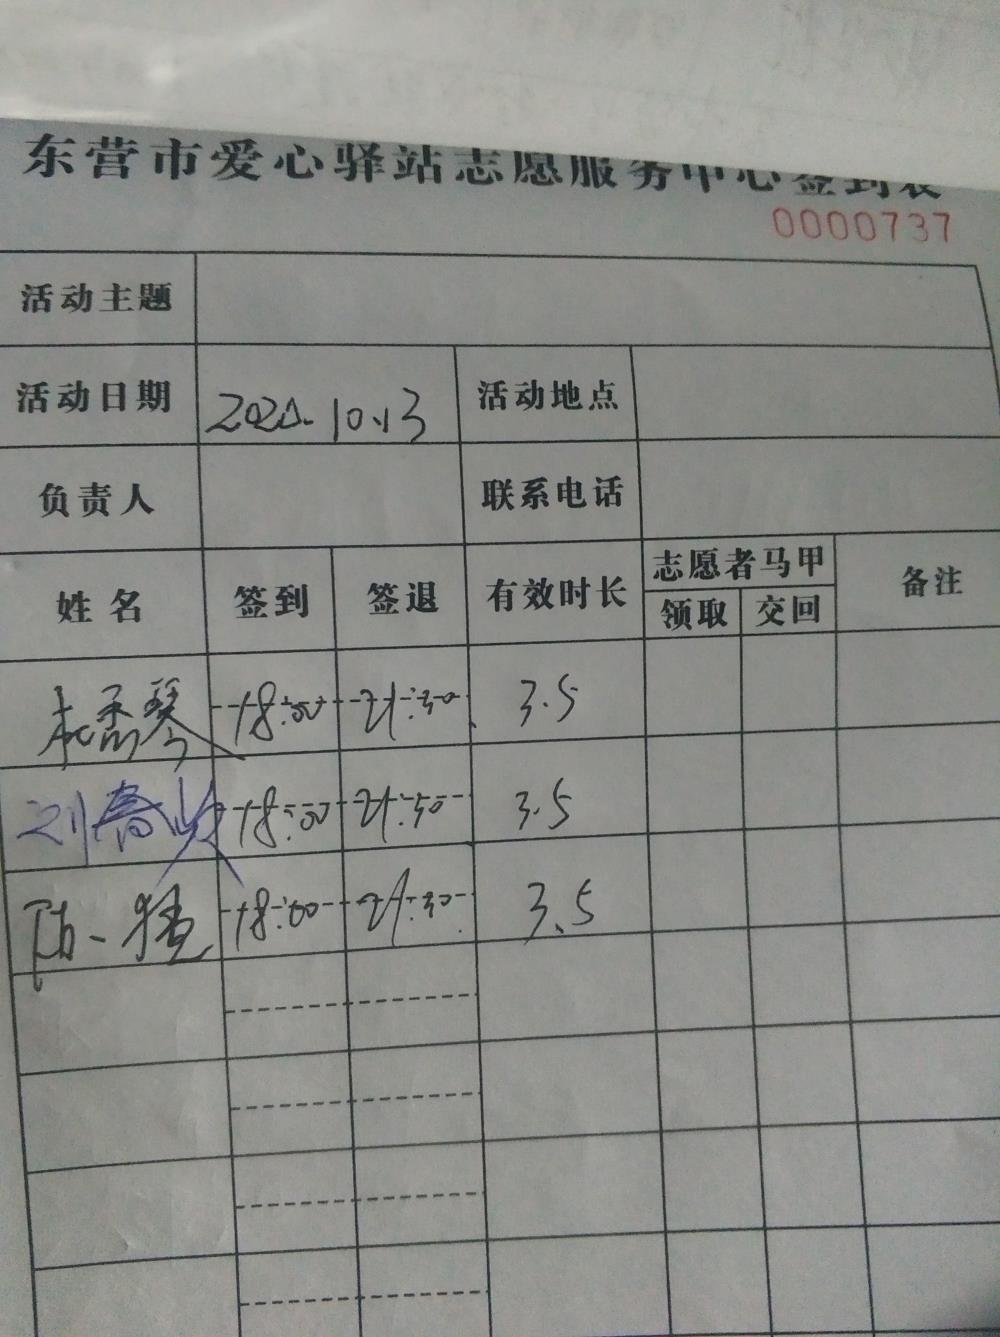 东营市爱心驿站志愿服务中心签到表
0000737
活动主题
活动日期 2020.10.13 活动地点
负责人 联系电话
姓名 签到 签退 有效时长 志愿者马甲 备注
领取 交回
18:00 21:30 3.5
刘春 18:00 21:30 3.5
陈 18:00 21:30 3.5